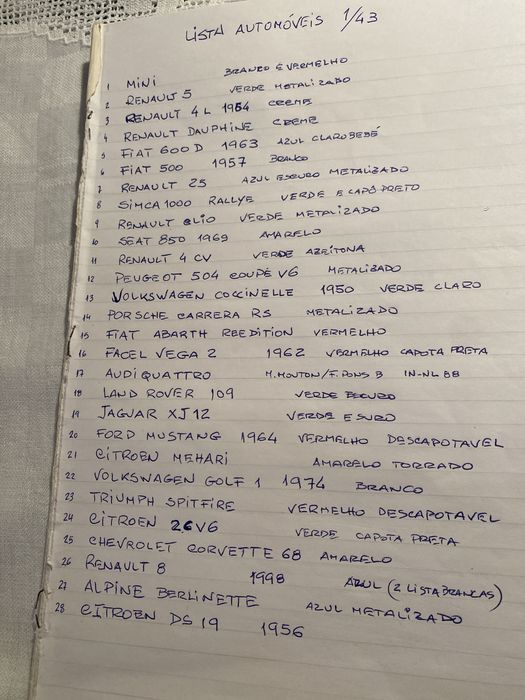 LISTA AUTOMÓVEIS 1/43
1 MINI BRANCO E VERMELHO
2 RENAULT 5 VERDE METALIZADO
3 RENAULT 4 L 1964 CREME
4 RENAULT DAUPHINE CREME
5 FIAT 600 D 1963 AZUL CLARO BEBÉ
6 FIAT 500 1957 BRANCO
7 RENAULT 25 AZUL ESCURO METALIZADO
8 SIMCA 1000 RALLYE VERDE E CAPÔ PRETO
9 RENAULT CLIO VERDE METALIZADO
10 SEAT 850 1969 AMARELO
11 RENAULT 4 CV VERDE AZEITONA
12 PEUGEOT 504 COUPÉ V6 METALIZADO
13 VOLKSWAGEN COCCINELLE 1950 VERDE CLARO
14 PORSCHE CARRERA RS METALIZADO
15 FIAT ABARTH REEDITION VERMELHO
16 FACEL VEGA 2 1962 VERMELHO CAPOTA PRETA
17 AUDI QUATTRO M.MOUTON/F.PONS 3 IN-NL 88
18 LAND ROVER 109 VERDE ESCURO
19 JAGUAR XJ 12 VERDE ESURO
20 FORD MUSTANG 1964 VERMELHO DESCAPOTAVEL
21 CITROEN MEHARI AMARELO TORRADO
22 VOLKSWAGEN GOLF 1 1974 BRANCO
23 TRIUMPH SPITFIRE VERMELHO DESCAPOTAVEL
24 CITROEN 2CV6 VERDE CAPOTA PRETA
25 CHEVROLET CORVETTE 68 AMARELO
26 RENAULT 8 1998 AZUL (2 LISTA BRANCAS)
27 ALPINE BERLINETTE AZUL METALIZADO
28 CITROEN DS 19 1956